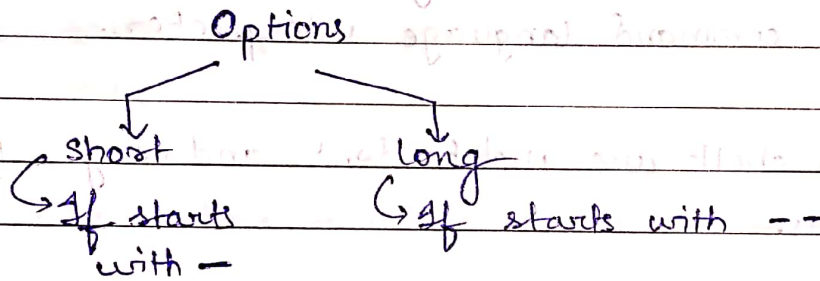 Options
short
long
If starts
with -
If starts with --